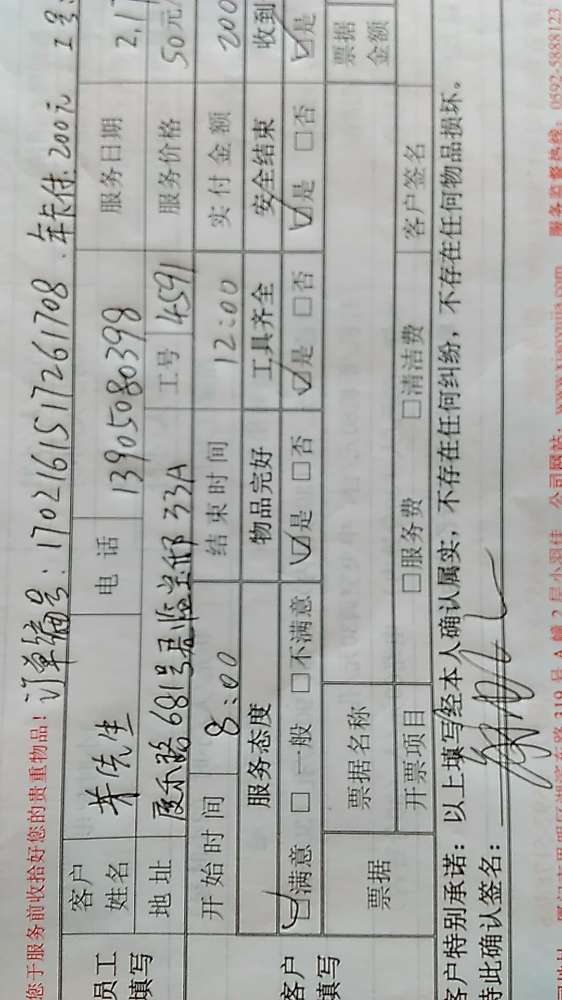 您于服务前收拾好您的贵重物品!
订单编号:1702161517261708.年卡付.200元 工号:
员工 填写
客户姓名 先生 电话 13905080398 服务日期 2.17
地址 681号 33A 工号 4591 服务价格 50元/
开始时间 8:00 结束时间 12:00 实付金额 200
客户 填写
服务态度 物品完好 工具齐全 安全结束 收到
☑满意 □一般 □不满意 ☑是 □否 ☑是 □否 ☑是 □否 ☑是
票据 票据名称 票据金额
开票项目 □服务费 □清洁费 客户签名
客户特别承诺:以上填写经本人确认属实,不存在任何纠纷,不存在任何物品损坏。
特此确认签名:
319号A幢2层小羽佳 公司网站:www.xiaoyujia.com 服务监督热线:0592-5888123